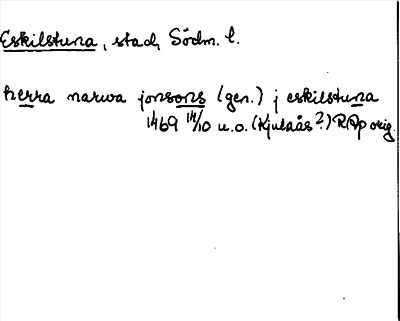 Eskilstuna, stad, Södm. l.
herra narwa jonssons (gen.) j eskilstuna
1469 14/10 u.o. (Kjulaås?) RAp orig.